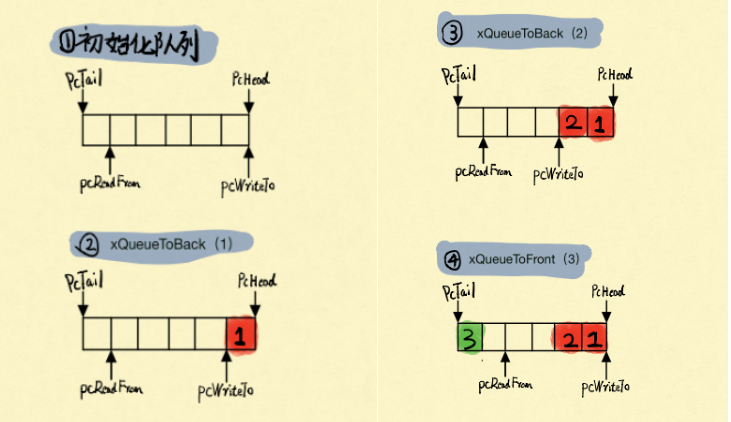 ①初始化队列
PcTail PcHead
pcReadFrom pcWriteTo
② xQueueToBack（1）
PcTail PcHead
1
pcReadFrom pcWriteTo
③ xQueueToBack（2）
PcTail PcHead
2 1
pcReadFrom pcWriteTo
④ xQueueToFront（3）
PcTail PcHead
3 2 1
pcReadFrom pcWriteTo